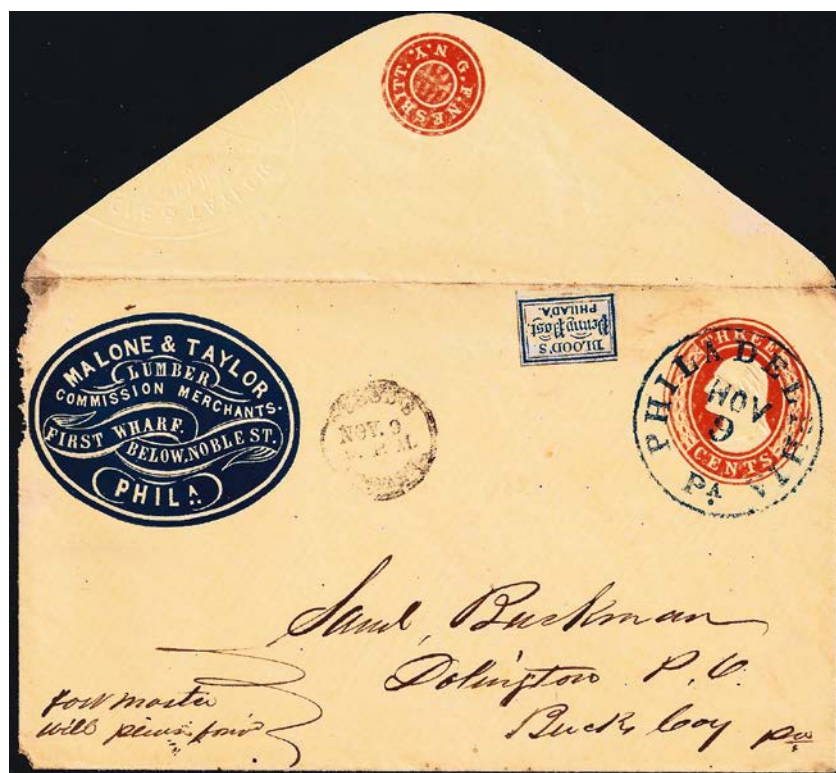 G. F. NESBITT. N.Y.
MALONE & TAYLOR
LUMBER
COMMISSION MERCHANTS.
FIRST WHARF.
BELOW, NOBLE ST.
PHILA.
BLOOD'S
Penny Post.
PHILADA.
NOV. 9
THREE
CENTS
PHILADELPHIA
NOV
9
PA.
Saml, Buckman
Dolington P. O.
Bucks Coy Pa
post master
will please forw